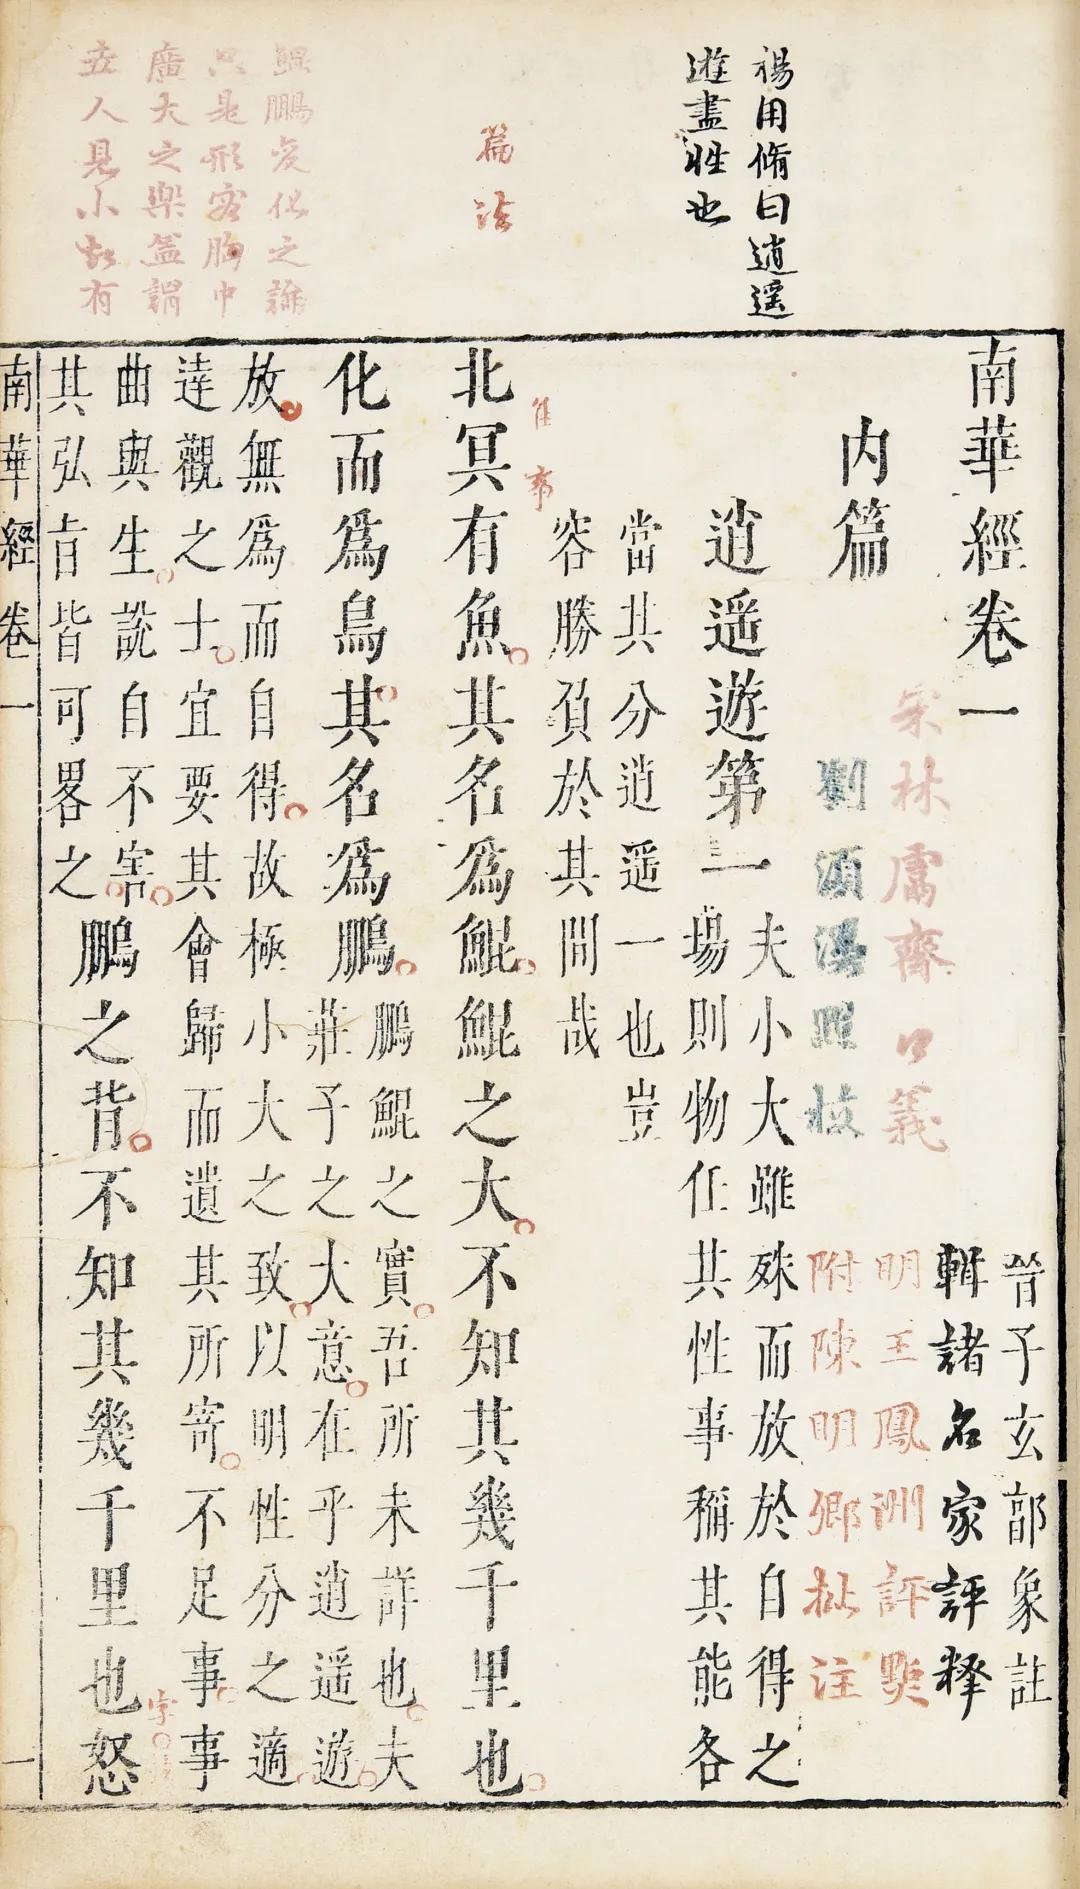 南華經卷一
晉子玄郭象註
輯諸名家評釋
宋林鬳齋口義
明王鳳洲評點
劉須溪點校
附陳明卿批注
內篇
逍遥遊第一
夫小大雖殊而放於自得之
場則物任其性事稱其能各
當其分逍遥一也豈
容勝負於其間哉
北冥有魚其名為鯤鯤之大不知其幾千里也
化而為鳥其名為鵬
鵬鯤之實吾所未詳也夫
莊子之大意在乎逍遥遊
放無為而自得故極小大之致以明性分之適
達觀之士宜要其會歸而遺其所寄不足事事
曲與生說自不害
其弘旨皆可畧之
鵬之背不知其幾千里也怒
南華經卷一
一
楊用脩曰逍遥
遊盡性也
篇法
鯤鵬變化之論
只是形容胸中
廣大之樂盖謂
世人見小故有